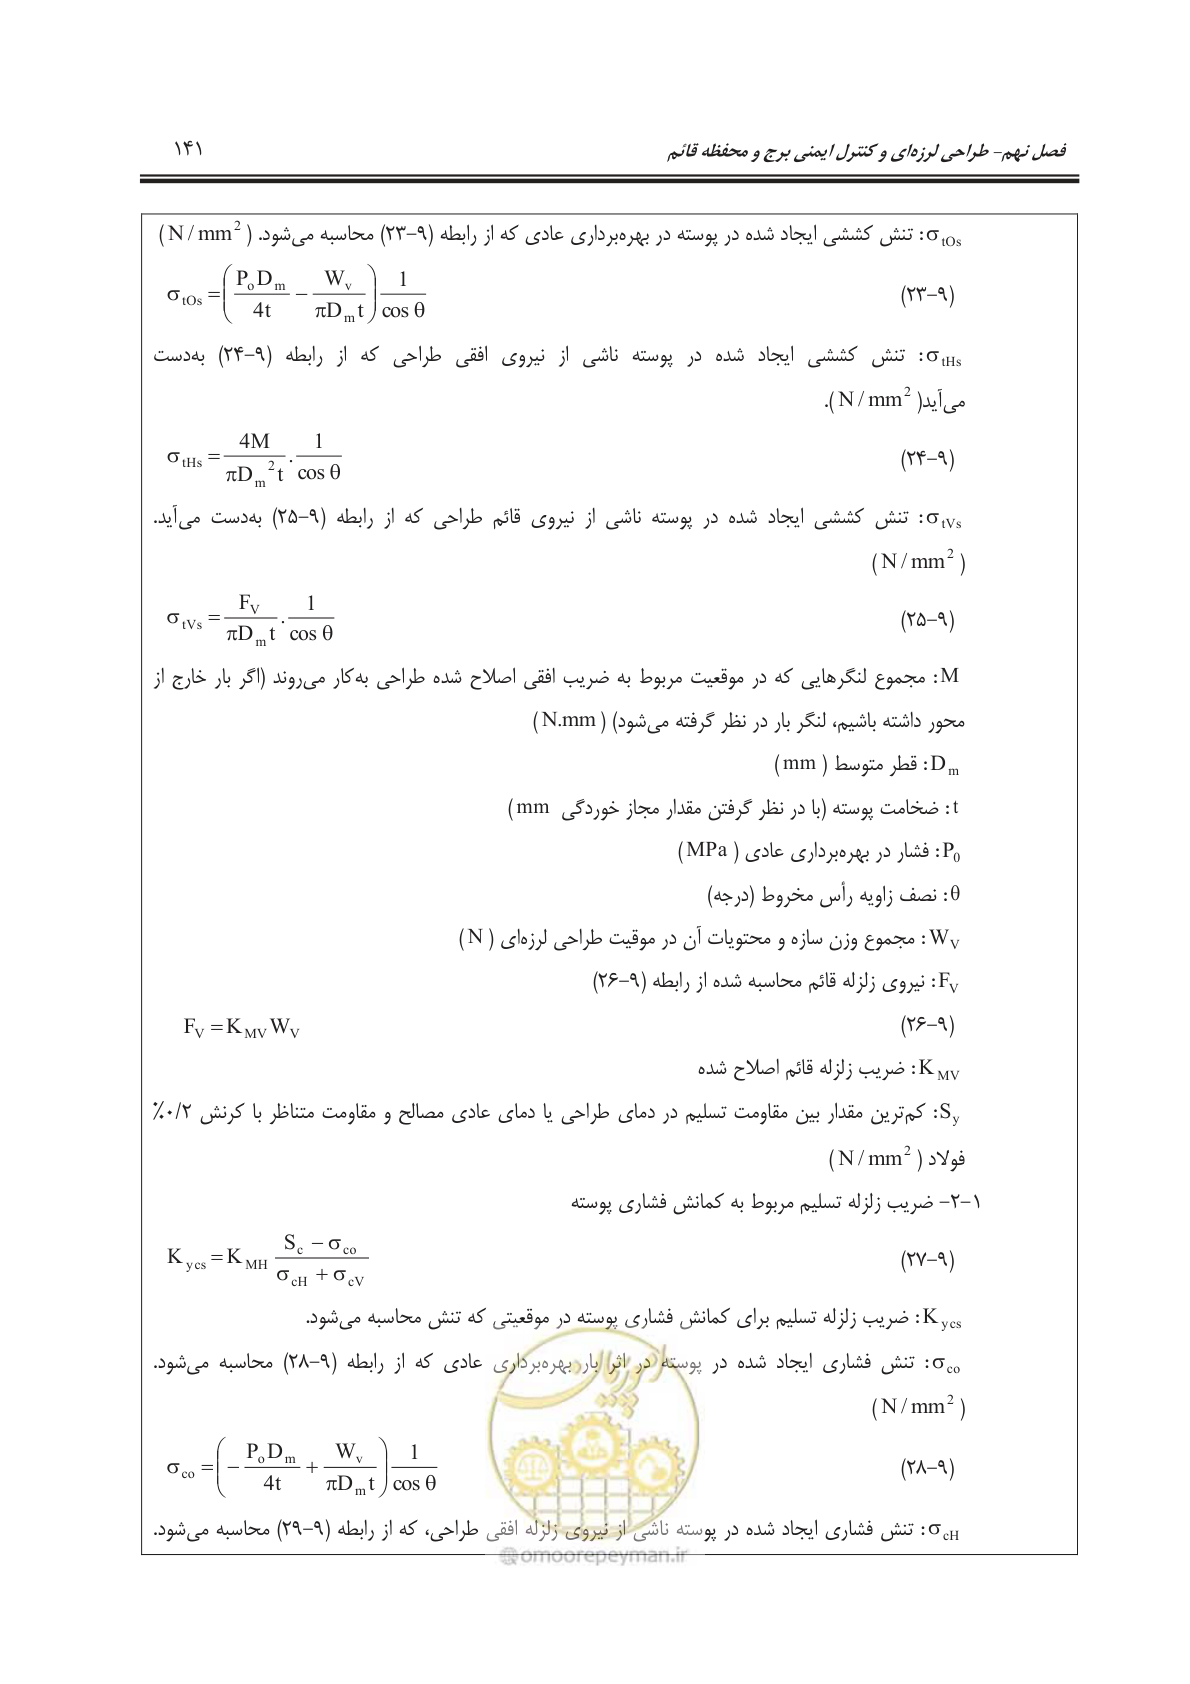 فصل نهم– طراحی لرزه‌ای و کنترل ایمنی برج و محفظه قائم ۱۴۱
σtOs: تنش کششی ایجاد شده در پوسته در بهره‌برداری عادی که از رابطه (۹–۲۳) محاسبه می‌شود. (N/mm²)
σtOs = (PoDm/4t − Wv/πDmt) 1/cos θ (۹–۲۳)
σtHs: تنش کششی ایجاد شده در پوسته ناشی از نیروی افقی طراحی که از رابطه (۹–۲۴) به‌دست
می‌آید( N/mm²).
σtHs = 4M/πDm²t . 1/cos θ (۹–۲۴)
σtVs: تنش کششی ایجاد شده در پوسته ناشی از نیروی قائم طراحی که از رابطه (۹–۲۵) به‌دست می‌آید.
(N/mm²)
σtVs = FV/πDmt . 1/cos θ (۹–۲۵)
M: مجموع لنگرهایی که در موقعیت مربوط به ضریب افقی اصلاح شده طراحی به‌کار می‌روند (اگر بار خارج از
محور داشته باشیم، لنگر بار در نظر گرفته می‌شود) (N.mm)
Dm: قطر متوسط (mm)
t: ضخامت پوسته (با در نظر گرفتن مقدار مجاز خوردگی mm)
P0: فشار در بهره‌برداری عادی (MPa)
θ: نصف زاویه رأس مخروط (درجه)
WV: مجموع وزن سازه و محتویات آن در موقیت طراحی لرزه‌ای (N)
FV: نیروی زلزله قائم محاسبه شده از رابطه (۹–۲۶)
FV = KMV WV (۹–۲۶)
KMV: ضریب زلزله قائم اصلاح شده
Sy: کم‌ترین مقدار بین مقاومت تسلیم در دمای طراحی یا دمای عادی مصالح و مقاومت متناظر با کرنش ۰/۲٪
فولاد (N/mm²)
۱–۲– ضریب زلزله تسلیم مربوط به کمانش فشاری پوسته
Kycs = KMH (Sc − σco)/(σcH + σcV) (۹–۲۷)
Kycs: ضریب زلزله تسلیم برای کمانش فشاری پوسته در موقعیتی که تنش محاسبه می‌شود.
σco: تنش فشاری ایجاد شده در پوسته در اثر بار بهره‌برداری عادی که از رابطه (۹–۲۸) محاسبه می‌شود.
(N/mm²)
σco = (− PoDm/4t + Wv/πDmt) 1/cos θ (۹–۲۸)
σcH: تنش فشاری ایجاد شده در پوسته ناشی از نیروی زلزله افقی طراحی، که از رابطه (۹–۲۹) محاسبه می‌شود.
امور پیمان
@omoorepeyman.ir